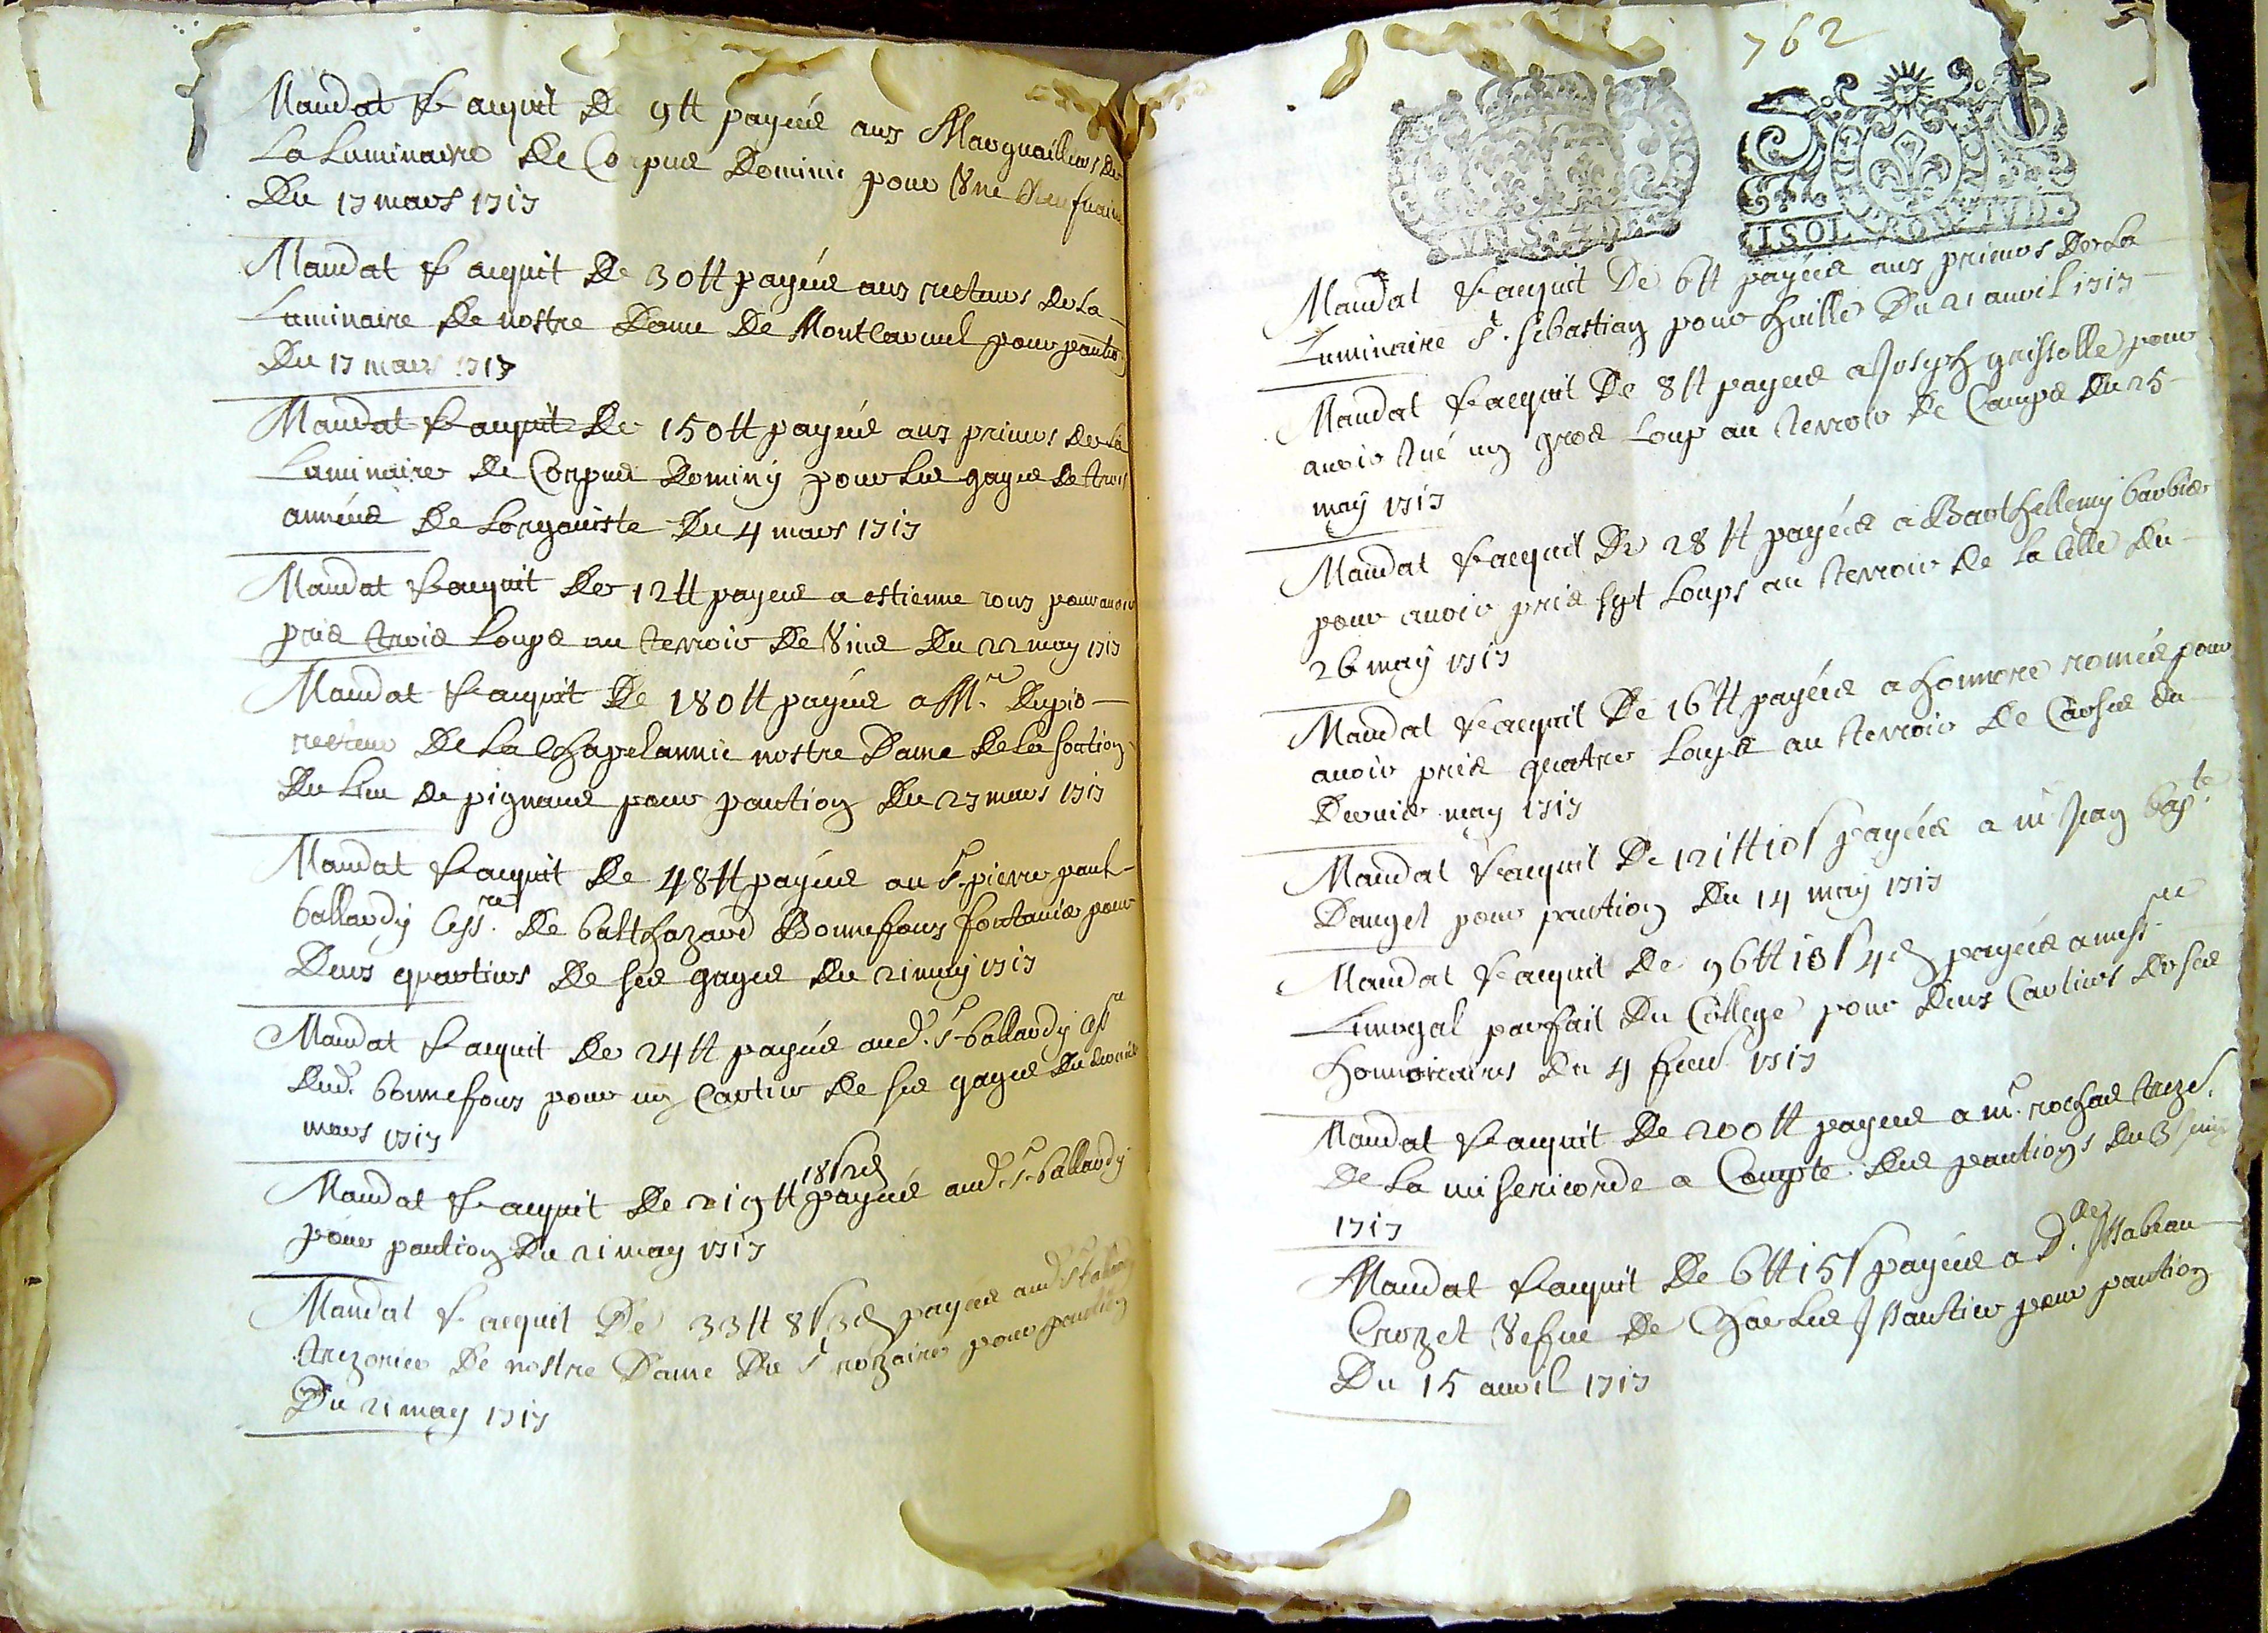 Mandat & acquit de 9 tt payées aux Marguailliers de
La Luminaire de Corpus Dominic pour Une
Du 17 mars 1717
Mandat & acquit de 30 tt payées aux recteurs de La
Luminaire de nostre Dame De Montcarmel pour pantion
Du 17 mars 1717
Mandat & acquit de 150 tt payées aux prieurs de La
Luminaire de Corpus Dominy pour Les gages de trois
années de Lorganiste Du 4 mars 1717
Mandat & acquit de 12 tt payees a estienne roux pour avoir
pris trois Loups au terroir De Vins Du 22 may 1717
Mandat & acquit de 180 tt payées a Mre. Dupio
recteur De La Chapelannie nostre Dame de La
Du Lieu de pignans pour pantion du 23 mars 1717
Mandat & acquit de 48 tt payées au Sr. pierre paul
ballardy Cessre. De balthazard Bonnefoux fontanier pour
Deux quartiers De ses gages du 21 may 1717
Mandat & acquit de 24 tt payées aud. Sr ballardy Cessre
Dud. bonnefoux pour un Cartier De ses gages Du dernier
mars 1717
18 s 2 d
Mandat & acquit de 219 tt payées aud. Sr. ballardy
pour pantion Du 21 may 1717
Mandat & acquit De 33 tt 8 s 3 d payées aud. Sr ballardy
trezorier De nostre Dame Du St rozaire pour pantion
Du 21 may 1717
762
VN S. 4 D.
1 SOL
Mandat & acquit De 6 tt payées aux prieurs de La
Luminaire St. sebastian pour huille Du 21 auvil 1717
Mandat & acquit De 8 tt payees a Joseph grissolle pour
avoir tué un gros Loup au terroir de Camps du 25
may 1717
Mandat & acquit De 28 tt payées a Barthellemy barbier
pour avoir pris sept Loups au terroir de La Celle du
26 may 1717
Mandat & acquit De 16 tt payées a honnore romées pour
avoir pris quatre Loups au terroir de Carses du
Dernier may 1717
Mandat & acquit De 121 tt 10 s payées a mr Jean bapte.
Dauget pour pantion Du 14 may 1717
Mandat & acquit de 96 tt 13 s 4 d payées a messre
Limogal parfait Du College pour Deux Cartiers de ses
honnoraires du 4 1717
Mandat & acquit de 200 tt payées a mr. rochas trezr.
De La misericorde a Compte des pantions du 3 juin
1717
Mandat & acquit de 6 tt 15 s payées a dlle. Isabeau
Crozet Vefue de Charles Isautier pour pantion
Du 15 auvil 1717